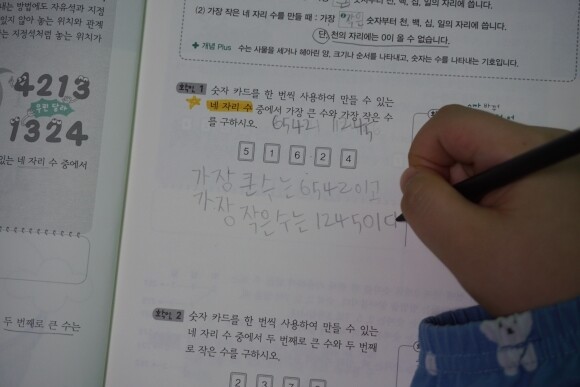 되는 방법에도 자유석과 지정
있지 않아 놓는 위치와 관계
는 지정석처럼 놓는 위치가
4213
1324
있는 네 자리 수 중에서
두 번째로 큰 수는
(2) 가장 작은 네 자리 수를 만들 때 : 가장 작은 숫자부터 천, 백, 십, 일의 자리에 씁니다.
단, 천의 자리에는 0이 올 수 없습니다.
개념 Plus 수는 사물을 세거나 헤아린 양, 크기나 순서를 나타내고, 숫자는 수를 나타내는 기호입니다.
확인 1 숫자 카드를 한 번씩 사용하여 만들 수 있는
네 자리 수 중에서 가장 큰 수와 가장 작은 수
를 구하시오.
5 1 6 2 4
가장 큰수는 6542이고
가장 작은수는 1245이다
확인 2 숫자 카드를 한 번씩 사용하여 만들 수 있는
네 자리 수 중에서 두 번째로 큰 수와 두 번째
로 작은 수를 구하시오.
2 3 7